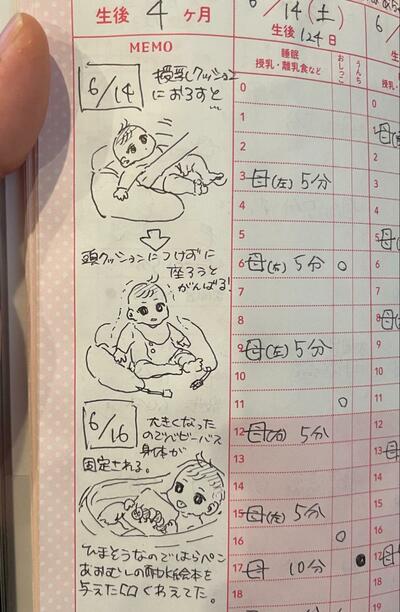 生後 4 ヶ月
MEMO
6/14
授乳クッション
におろすと…
頭クッションにつけずに
座ろうと
がんばる!
6/16
大きくなった
のでベビーバス
身体が
固定される。
ひまそうなのではらぺこ
あおむしの耐水絵本を
与えた□くわえてた。
6/14(土)
生後 124日
睡眠
授乳・離乳食など
おしっこ
うんち
0
1
2
3 母(左) 5分
4
5
6 母(右) 5分 ○
7
8
9 母(左) 5分
10
11 ○
12 母(右) 5分
13
14
15 母(左) 5分
16 ○
17 母 10分 ●
18
6/
0
1
2
3
4
5
6
7
8
9
10
11
12
13
14
15
16
17
18